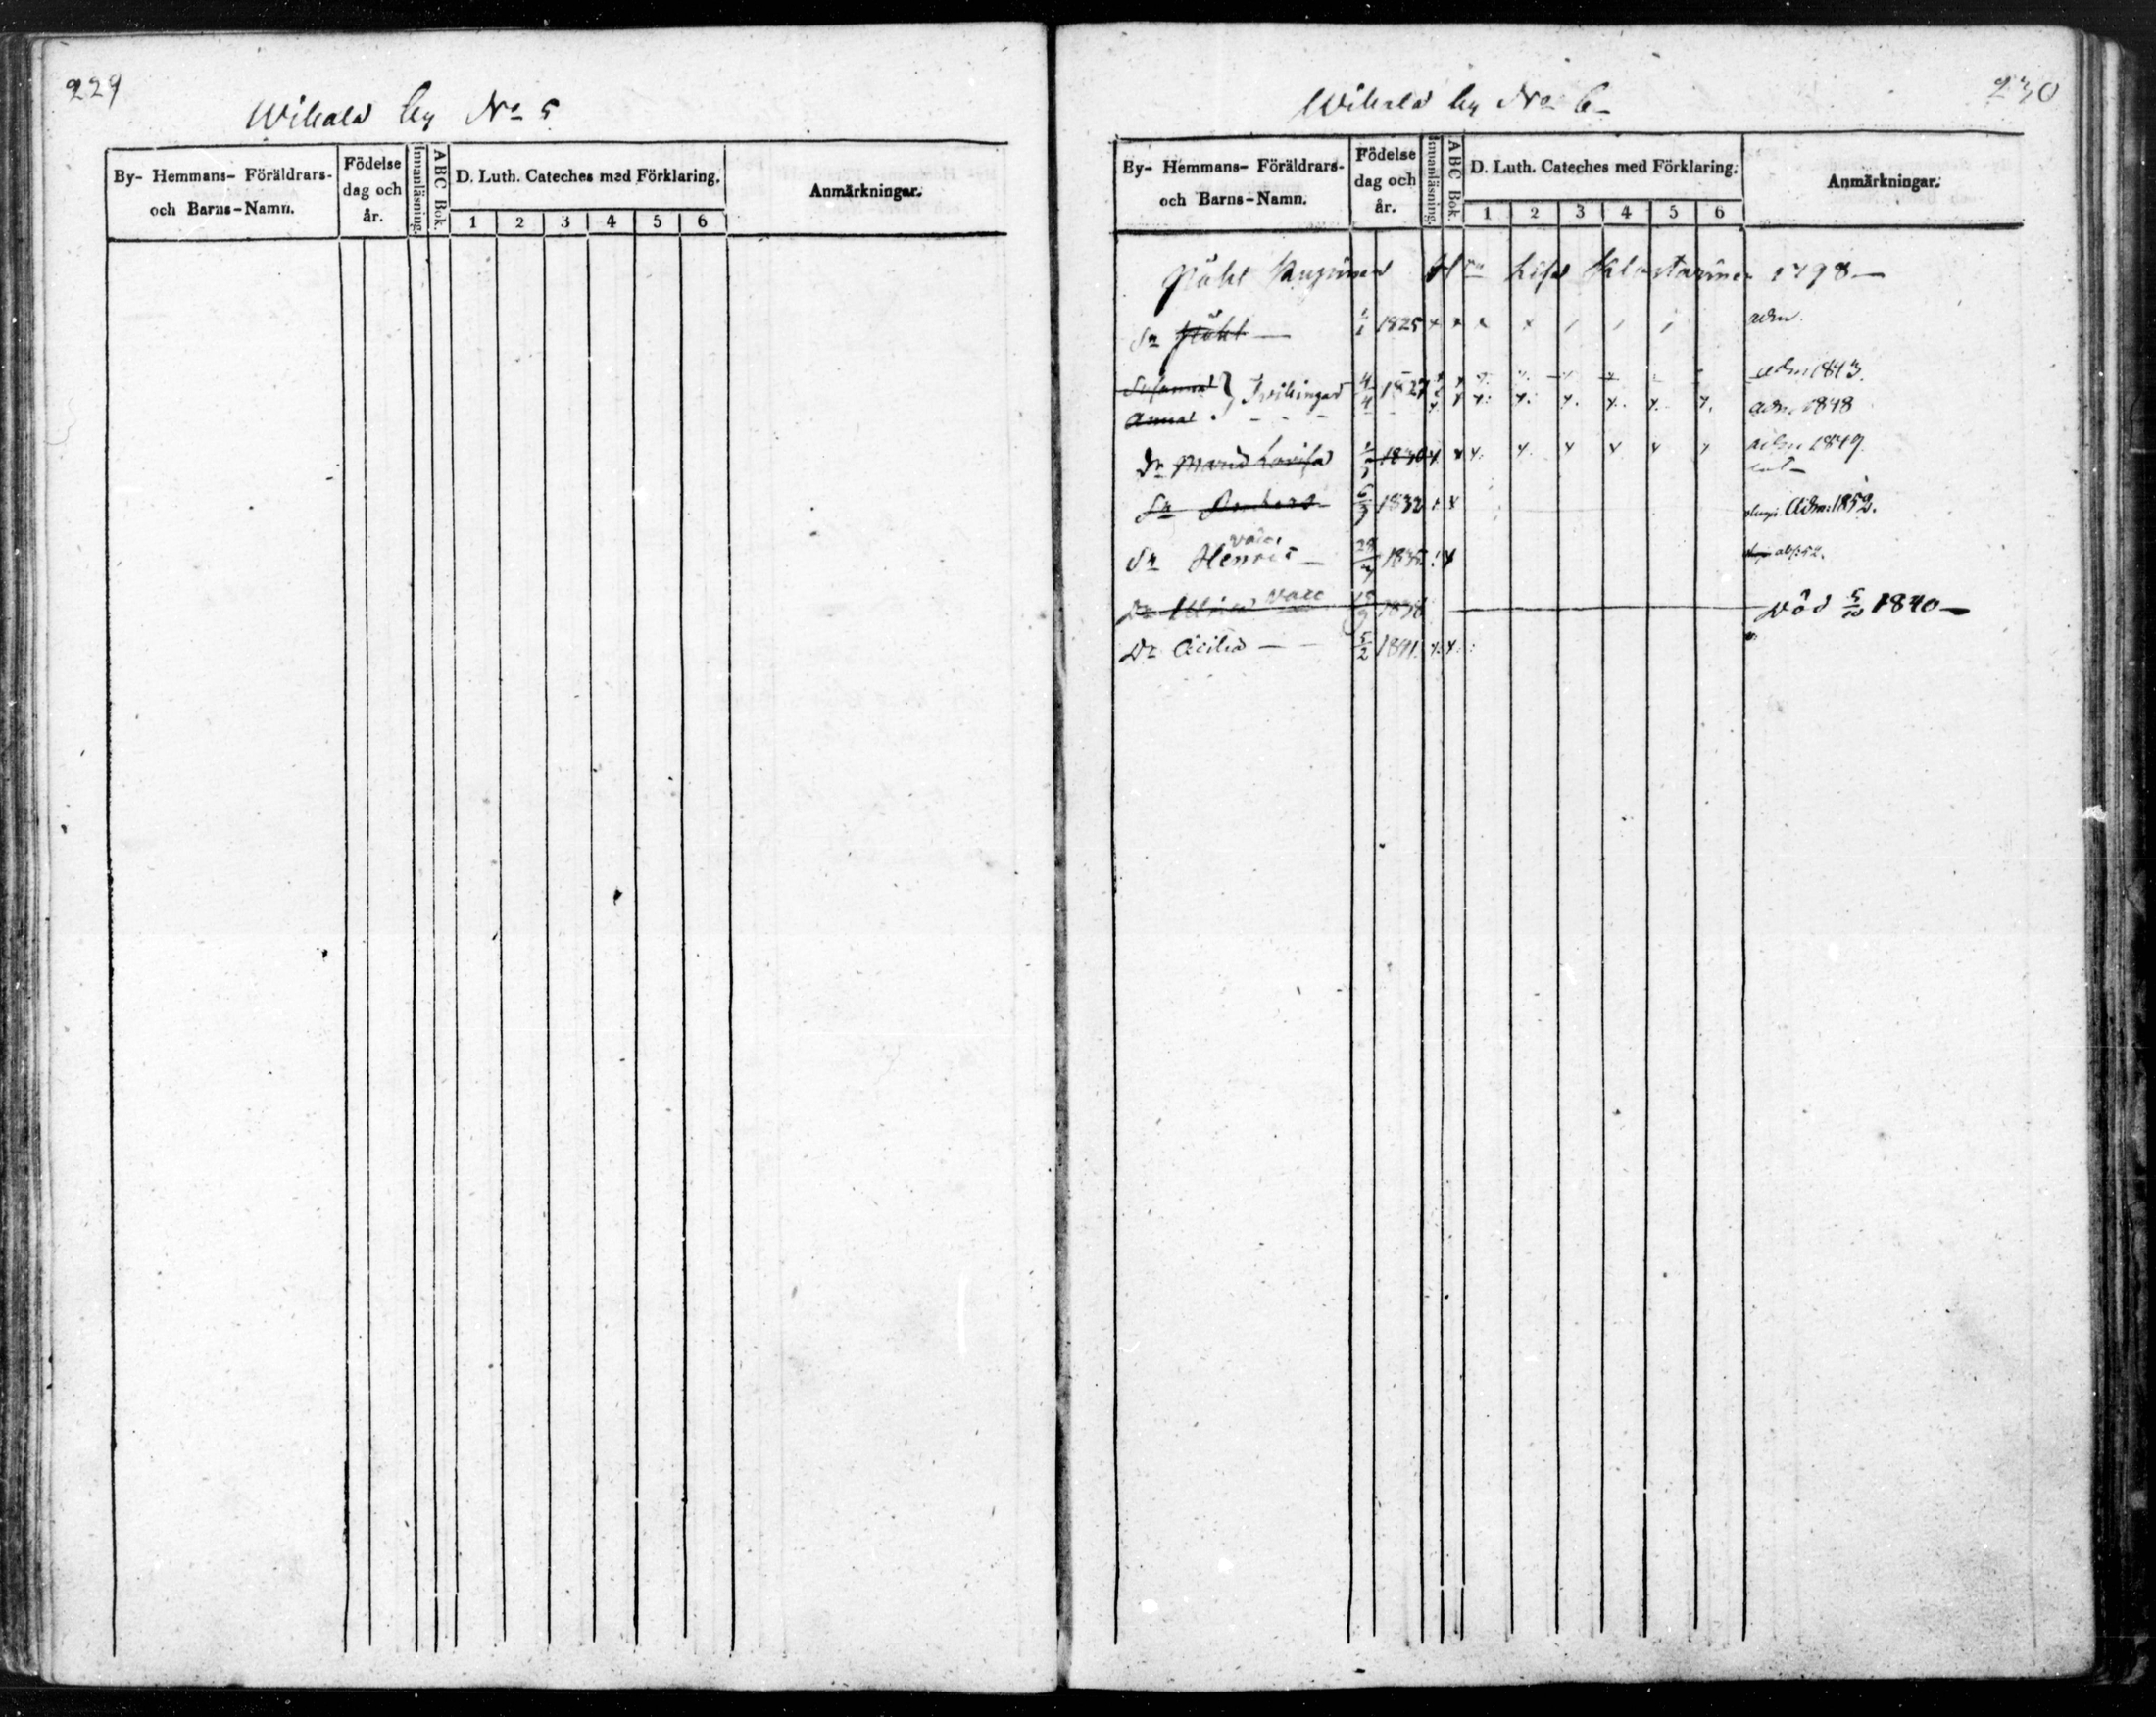 229
Wikala by No 5
By- Hemmans- Föräldrars- och Barns-Namn.
Födelse dag och år.
Innanläsning.
ABC Bok.
D. Luth. Cateches med Förklaring.
1 2 3 4 5 6
Anmärkningar.
230
Wikala by No 6
By- Hemmans- Föräldrars- och Barns-Namn.
Födelse dag och år.
Innanläsning.
ABC Bok.
D. Luth. Cateches med Förklaring.
1 2 3 4 5 6
Anmärkningar.
Påhl Hu Lisa 1798
Sn Påhl 1/1 1825 x x x x / / / adm.
Susanna } Tvillingar 4/4 1827 adm 1843.
Anna adm. 1848
Dr Maria Lovisa 1830 adm 1849
Sn 1832 Adm. 1852.
vacc.
Sn Henric 1835
Dr vacc 1838 död 5/10 1840
Dr Cicilia 5/2 1841. x x